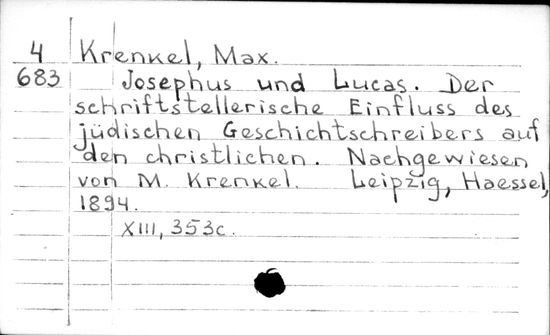 4 Krenkel, Max.
683 Josephus und Lucas. Der
schriftstellerische Einfluss des
jüdischen Geschichtschreibers auf
den christlichen. Nachgewiesen
von M. Krenkel. Leipzig, Haessel,
1894.
XIII, 353c.